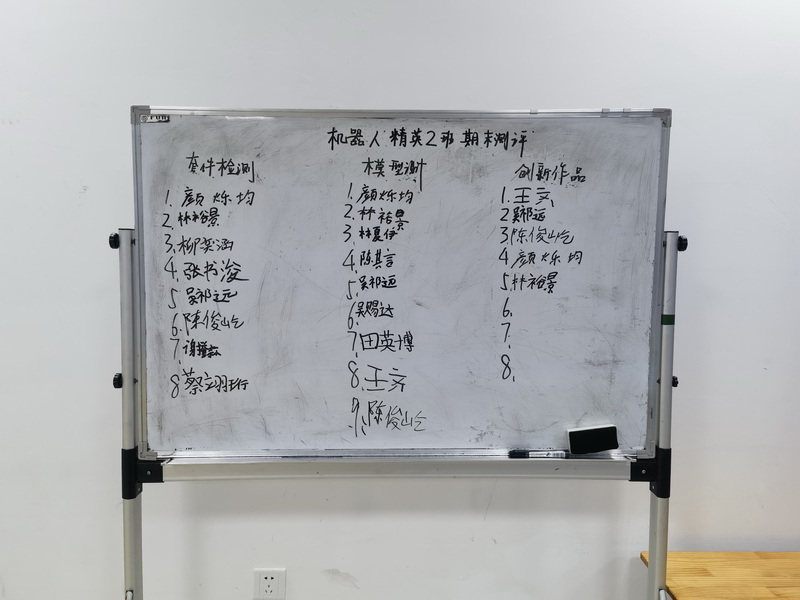 机器人精英2班期末测评
套件检测
1. 颜烁均
2. 林裕景
3. 柳英涵
4. 张书浚
5 吴祁远
6. 陈俊屹
7.
8 蔡立羽珩
模型设计
1. 颜烁均
2. 林裕景
3. 林夏伊
4. 陈其言
5. 吴祁远
6. 吴赐达
7. 田英博
8. 王文
9. 陈俊屹
创新作品
1. 王文
2 吴祁远
3 陈俊屹
4. 颜烁均
5. 林裕景
6.
7.
8.